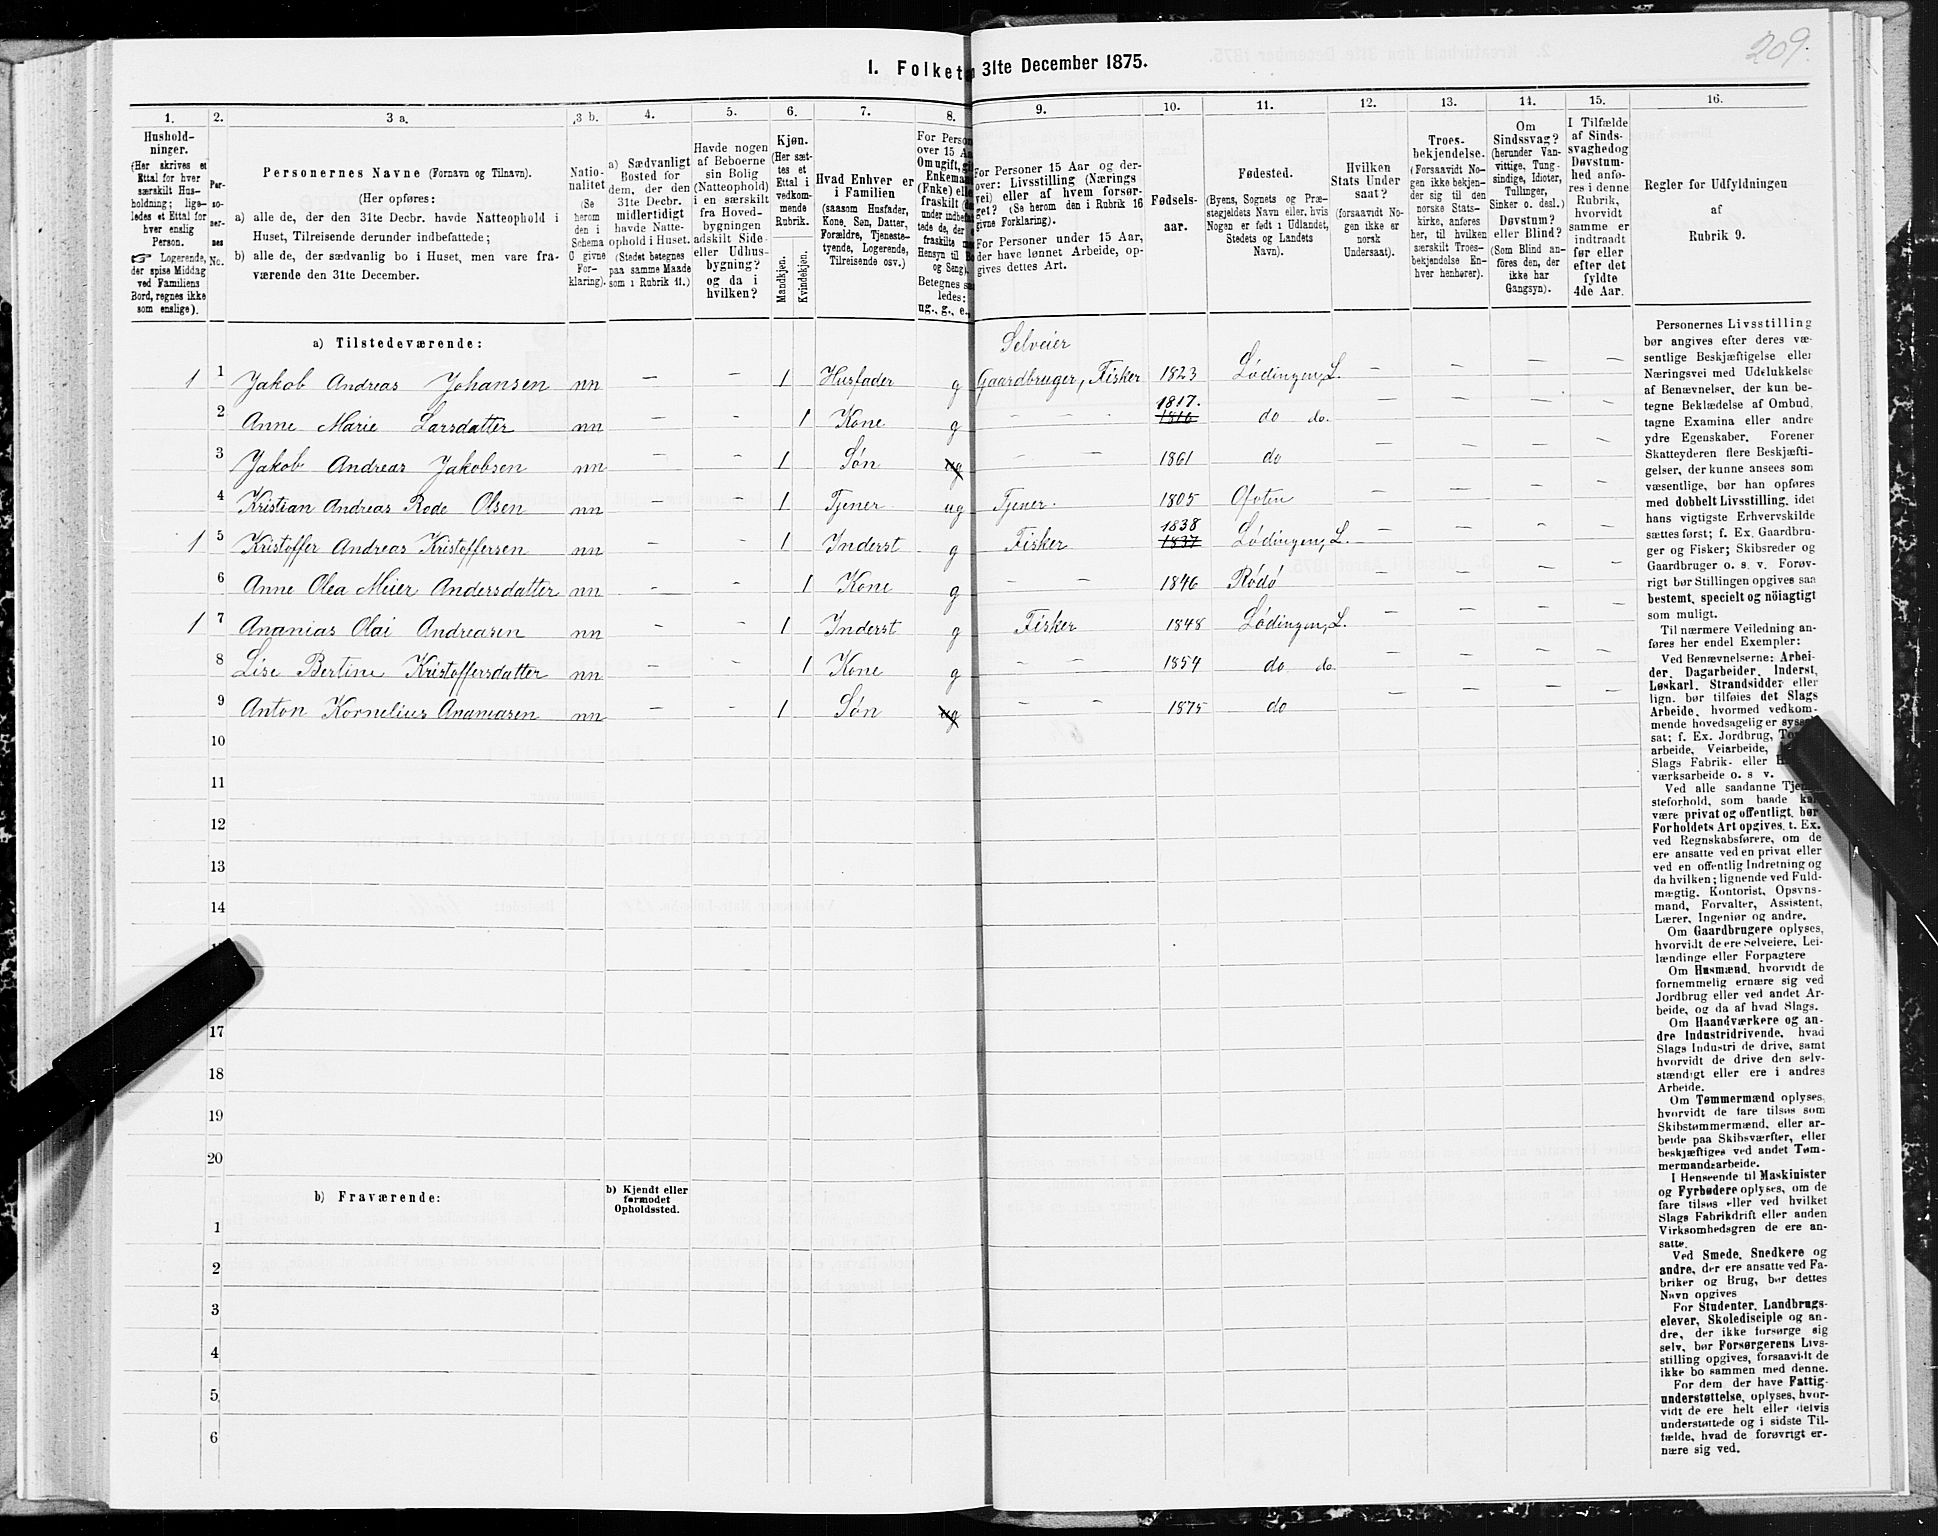 209.
I. Folket
31te December 1875.
1.
2.
3 a.
3 b.
4.
5.
6.
7.
8.
9.
10.
11.
12.
13.
14.
15.
16.
Hushold-
ninger.
(Her skrives et
Ettal for hver
særskilt Hus-
holdning; lige-
ledes et Ettal for
hver enslig
Person.
☞ Logerende,
der spise Middag
ved Familiens
Bord, regnes ikke
som enslige).
Per-
so-
ner-
nes
No.
Personernes Navne (Fornavn og Tilnavn).
(Her opføres:
a) alle de, der den 31te Decbr. havde Natteophold i
Huset, Tilreisende derunder indbefattede;
b) alle de, der sædvanlig bo i Huset, men vare fra-
værende den 31te December.
Natio-
nalitet
(Se
herom
den i
Schema
C givne
For-
klaring).
a) Sædvanligt
Bosted for
dem, der den
31te Decbr.
midlertidigt
havde Natte-
ophold i Huset.
(Stedet betegnes
paa samme Maade
som i Rubrik 11.)
Havde nogen
af Beboerne
sin Bolig
(Natteophold)
i en særskilt
fra Hoved-
bygningen
adskilt Side-
eller Udhus-
bygning?
og da i
hvilken?
Kjøn.
(Her sæt-
tes et
Ettal i
vedkom-
mende
Rubrik.
Mandkjøn.
Kvindekjøn.
Hvad Enhver er
i Familien
(saasom Husfader,
Kone, Søn, Datter,
Forældre, Tjeneste-
tyende, Logerende,
Tilreisende osv.)
For Person
over 15 Aa
Om ugift, gi
Enkeman
(Enke) elle
fraskilt
under indbefat
tede de, der
fraskilte
Hensyn til Bo
og Seng).
Betegnes saa
ledes:
ug., g., e.,
For Personer 15 Aar og der-
over: Livsstilling (Nærings-
vei) eller af hvem forsør-
get? (Se herom den i Rubrik 16
givne Forklaring).
For Personer under 15 Aar,
der have lønnet Arbeide, op-
gives dettes Art.
Fødsels-
aar.
Fødested.
(Byens, Sognets og Præ-
stegjeldets Navn eller, hvis
Nogen er født i Udlandet,
Stedets og Landets
Navn).
Hvilken
Stats Under-
saat?
(forsaavidt No-
gen ikke er
norsk
Undersaat).
Troes-
bekjendelse.
(Forsaavidt No-
gen ikke bekjen-
der sig til den
norske Stats-
kirke, anføres
her, til hvilken
særskilt Troes-
bekjendelse En-
hver henhører).
Om
Sindssvag?
(herunder Van-
vittige, Tung-
sindige, Idioter,
Tullinger,
Sinker o. desl.)
Døvstum?
eller Blind?
(Som Blind an-
føres den, der
ikke har
Gangsyn).
I Tilfælde
af Sinds-
svaghed og
Døvstum-
hed anfø-
res i denne
Rubrik,
hvorvidt
samme er
indtraadt
før eller
efter det
fyldte
4de Aar.
Regler for Udfyldningen
af
Rubrik 9.
a) Tilstedeværende:
Selveier
1 1 Jakob Andreas Johansen nn — — 1 Husfader g Gaardbruger, Fisker 1823 Lødingen, L. — — — —
1817.
2 Anne Marie Larsdatter nn — — 1 Kone g — — 1816 do do. — — — —
3 Jakob Andreas Jakobsen nn — — 1 Søn ug — — 1861 do — — — —
4 Kristian Andreas Rode Olsen nn — — 1 Tjener ug Tjener. 1805 Ofoten — — — —
1838
1 5 Kristoffer Andreas Kristoffersen nn — — 1 Inderst g Fisker 1837 Lødingen, L. — — — —
6 Anne Olea Meier Andersdatter nn — — 1 Kone g — — 1846 Rødø — — — —
1 7 Ananias Olai Andreasen nn — — 1 Inderst g Fisker 1848 Lødingen, L. — — — —
8 Lise Bertine Kristoffersdatter nn — — 1 Kone g — — 1854 do do — — — —
9 Anton Kornelius Ananiasen nn — — 1 Søn ug — — 1875 do — — — —
10
11
12
13
14
17
18
19
20
b) Fraværende:
b) Kjendt eller
formodet
Opholdssted.
1
2
3
4
5
6
Personernes Livsstilling
bør angives efter deres væ-
sentlige Beskjæftigelse eller
Næringsvei med Udelukkelse
af Benævnelser, der kun be-
tegne Beklædelse af Ombud,
tagne Examina eller andre
ydre Egenskaber. Forener
Skatteyderen flere Beskjæfti-
gelser, der kunne ansees som
væsentlige, bør han opføres
med dobbelt Livsstilling, idet
hans vigtigste Erhvervskilde
sættes først; f. Ex. Gaardbru-
ger og Fisker; Skibsreder og
Gaardbruger o. s. v. Forøv-
rigt bør Stillingen opgives saa
bestemt, specielt og nöiagtigt
som muligt.
Til nærmere Veiledning an-
føres her endel Exempler:
Ved Benævnelserne: Arbei-
der, Dagarbeider, Inderst,
Løskarl, Strandsidder eller
lign. bør tilføies det Slags
Arbeide, hvormed vedkom-
mende hovedsagelig er syssel-
sat; f. Ex. Jordbrug,
arbeide, Veiarbeide,
Slags Fabrik- eller
værksarbeide o. s. v.
Ved alle saadanne
steforhold, som baade kan
være privat og offentligt, bør
Forholdets Art opgives, t. Ex.
ved Regnskabsførere, om de
ere ansatte ved en privat eller
ved en offentlig Indretning og
da hvilken; lignende ved Fuld-
mægtig, Kontorist, Opsyns-
mand, Forvalter, Assistent,
Lærer, Ingeniør og andre.
Om Gaardbrugere oplyses,
hvorvidt de ere Selveiere, Lei-
lændinge eller Forpagtere
Om Husmænd, hvorvidt de
fornemmelig ernære sig ved
Jordbrug eller ved andet Ar-
beide, og da af hvad Slags.
Om Haandværkere og an-
dre Industridrivende, hvad
Slags Industri de drive, samt
hvorvidt de drive den selv-
stændigt eller ere i andres
Arbeide.
Om Tømmermænd oplyses,
hvorvidt de fare tilsøs som
Skibstømmermænd, eller ar-
beide paa Skibsværfter, eller
beskjæftiges ved andet Tøm-
mermandsarbeide.
I Henseende til Maskinister
og Fyrbødere oplyses, om de
fare tilsøs eller ved hvilket
Slags Fabrikdrift eller anden
Virksomhedsgren de ere an-
satte.
Ved Smede, Snedkere og
andre, der ere ansatte ved Fa-
briker og Brug, bør dettes
Navn opgives
For Studenter, Landbrugs-
elever, Skoledisciple og an-
dre, der ikke forsørge sig
selv, bør Forsørgerens Livs-
stilling opgives, forsaavidt de
ikke bo sammen med denne.
For dem, der have Fattig-
understøttelse, oplyses, hvor-
vidt de ere helt eller delvis
understøttede og i sidste Til-
fælde, hvad de forøvrigt er-
nære sig ved.